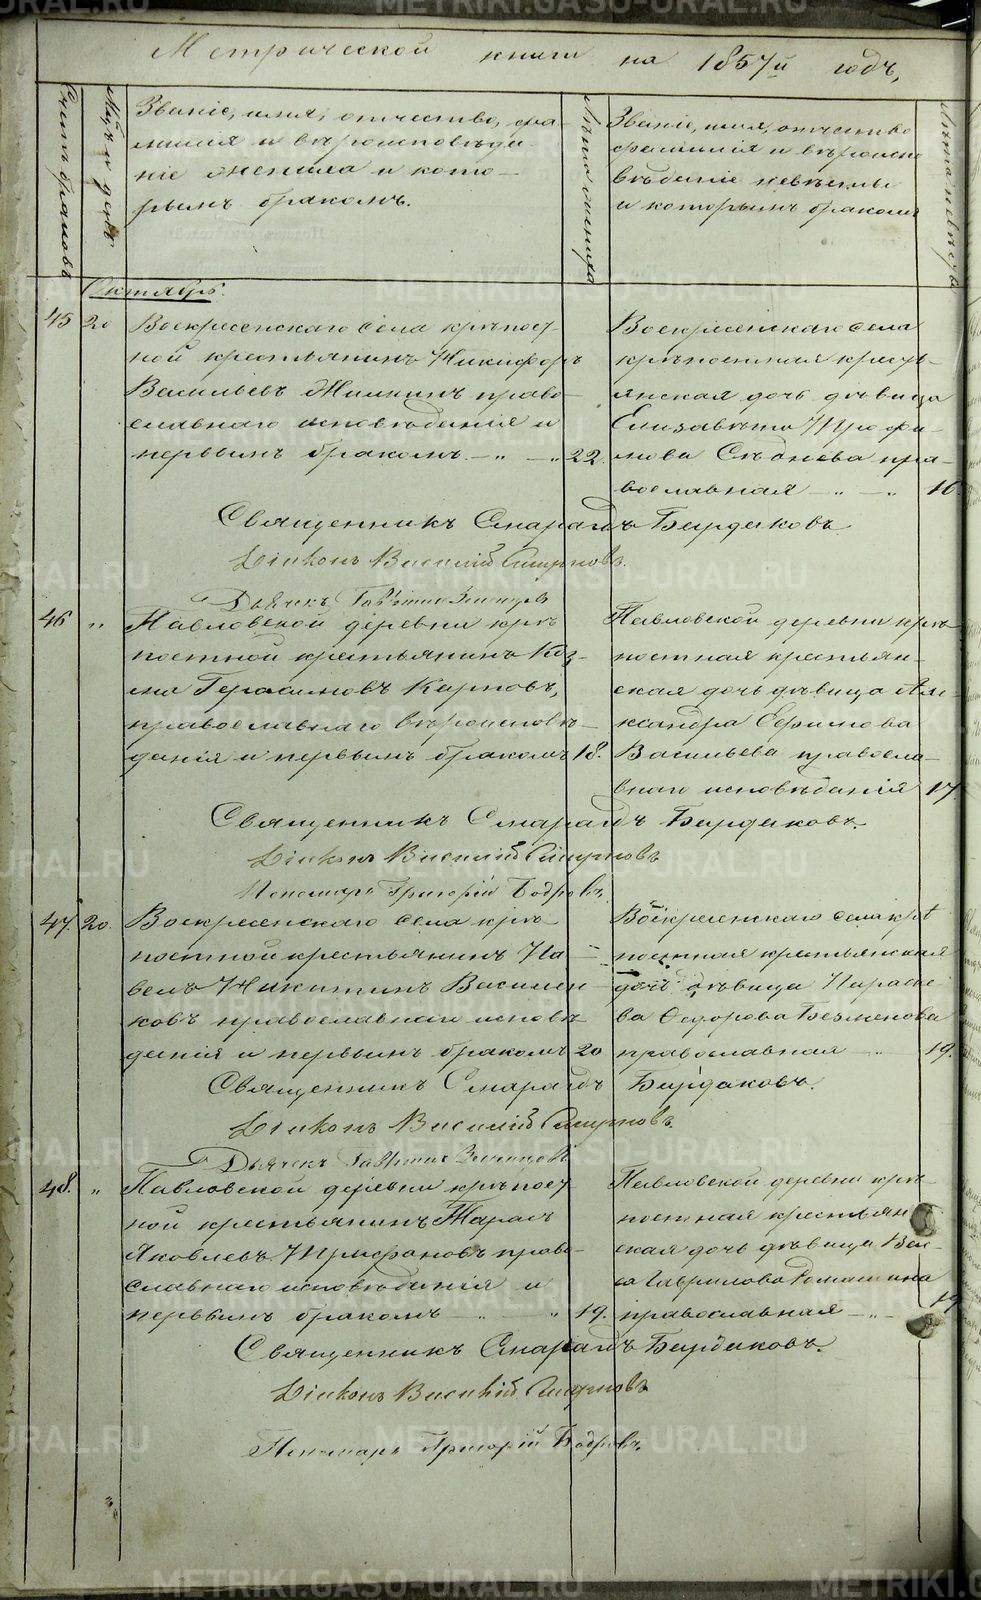 Метрической книги на 1857й годъ,
Счетъ браковъ
Мѣц. и день
Званіе, имя, отчество, фа-
милія и вѣроисповѣда-
ніе жениха и кото-
рымъ бракомъ.
Лѣта жениха
Званіе, имя, отчество
фамилія и вѣроиспо
вѣданіе невѣсты
и которымъ бракомъ
Лѣта невѣсты
Октябрь.
45 20
Воскресенскаго села крѣпост-
ной крестьянинъ Никифоръ
Васильевъ Жилкинъ право-
славнаго исповѣданія и
первымъ бракомъ 22.
Воскресенскаго села
крѣпостная кресть-
янская дочь дѣвица
Елизавета Трофи-
мова Сѣднева пра-
вославная 16.
Священникъ Смарагдъ Бирдаковъ
Діаконъ Василій Смирновъ.
Дьячекъ
46 "
Павловской деревни крѣ
постной крестьянинъ Коз-
ма Герасимовъ Карповъ,
православнаго вѣроисповѣ-
данія и первымъ бракомъ 18.
Павловской деревни крѣ
постная крестьян-
ская дочь дѣвица Але-
ксандра Ефимова
Васильева правосла-
внаго исповѣданія 17.
Священникъ Смарагдъ Бирдаковъ.
Діаконъ Василій Смирновъ
Пономарь Григорій Бодровъ
47. 20.
Воскресенскаго села крѣ-
постной крестьянинъ Па-
велъ Никитинъ Василен-
ковъ православнаго исповѣ
данія и первымъ бракомъ 20
Воскресенскаго села крѣ
постная крестьянская
дочь дѣвица Параске
ва Ѳедорова Безменова
православная 19.
Священникъ Смарагдъ Бирдаковъ.
Діаконъ Василій Смирновъ.
Дьячекъ
48. "
Павловской деревни крѣпост
ной крестьянинъ Тарасъ
Яковлевъ Трифоновъ право-
славнаго исповѣданія и
первымъ бракомъ 19.
Павловской деревни крѣ-
постная крестьян
ская дочь дѣвица Вас-
са Гаврилова Ромашкина
православная 19
Священникъ Смарагдъ Бирдаковъ.
Діаконъ Василій Смирновъ
Пономарь Григорій Бодровъ.
METRIKI.GASO-URAL.RU